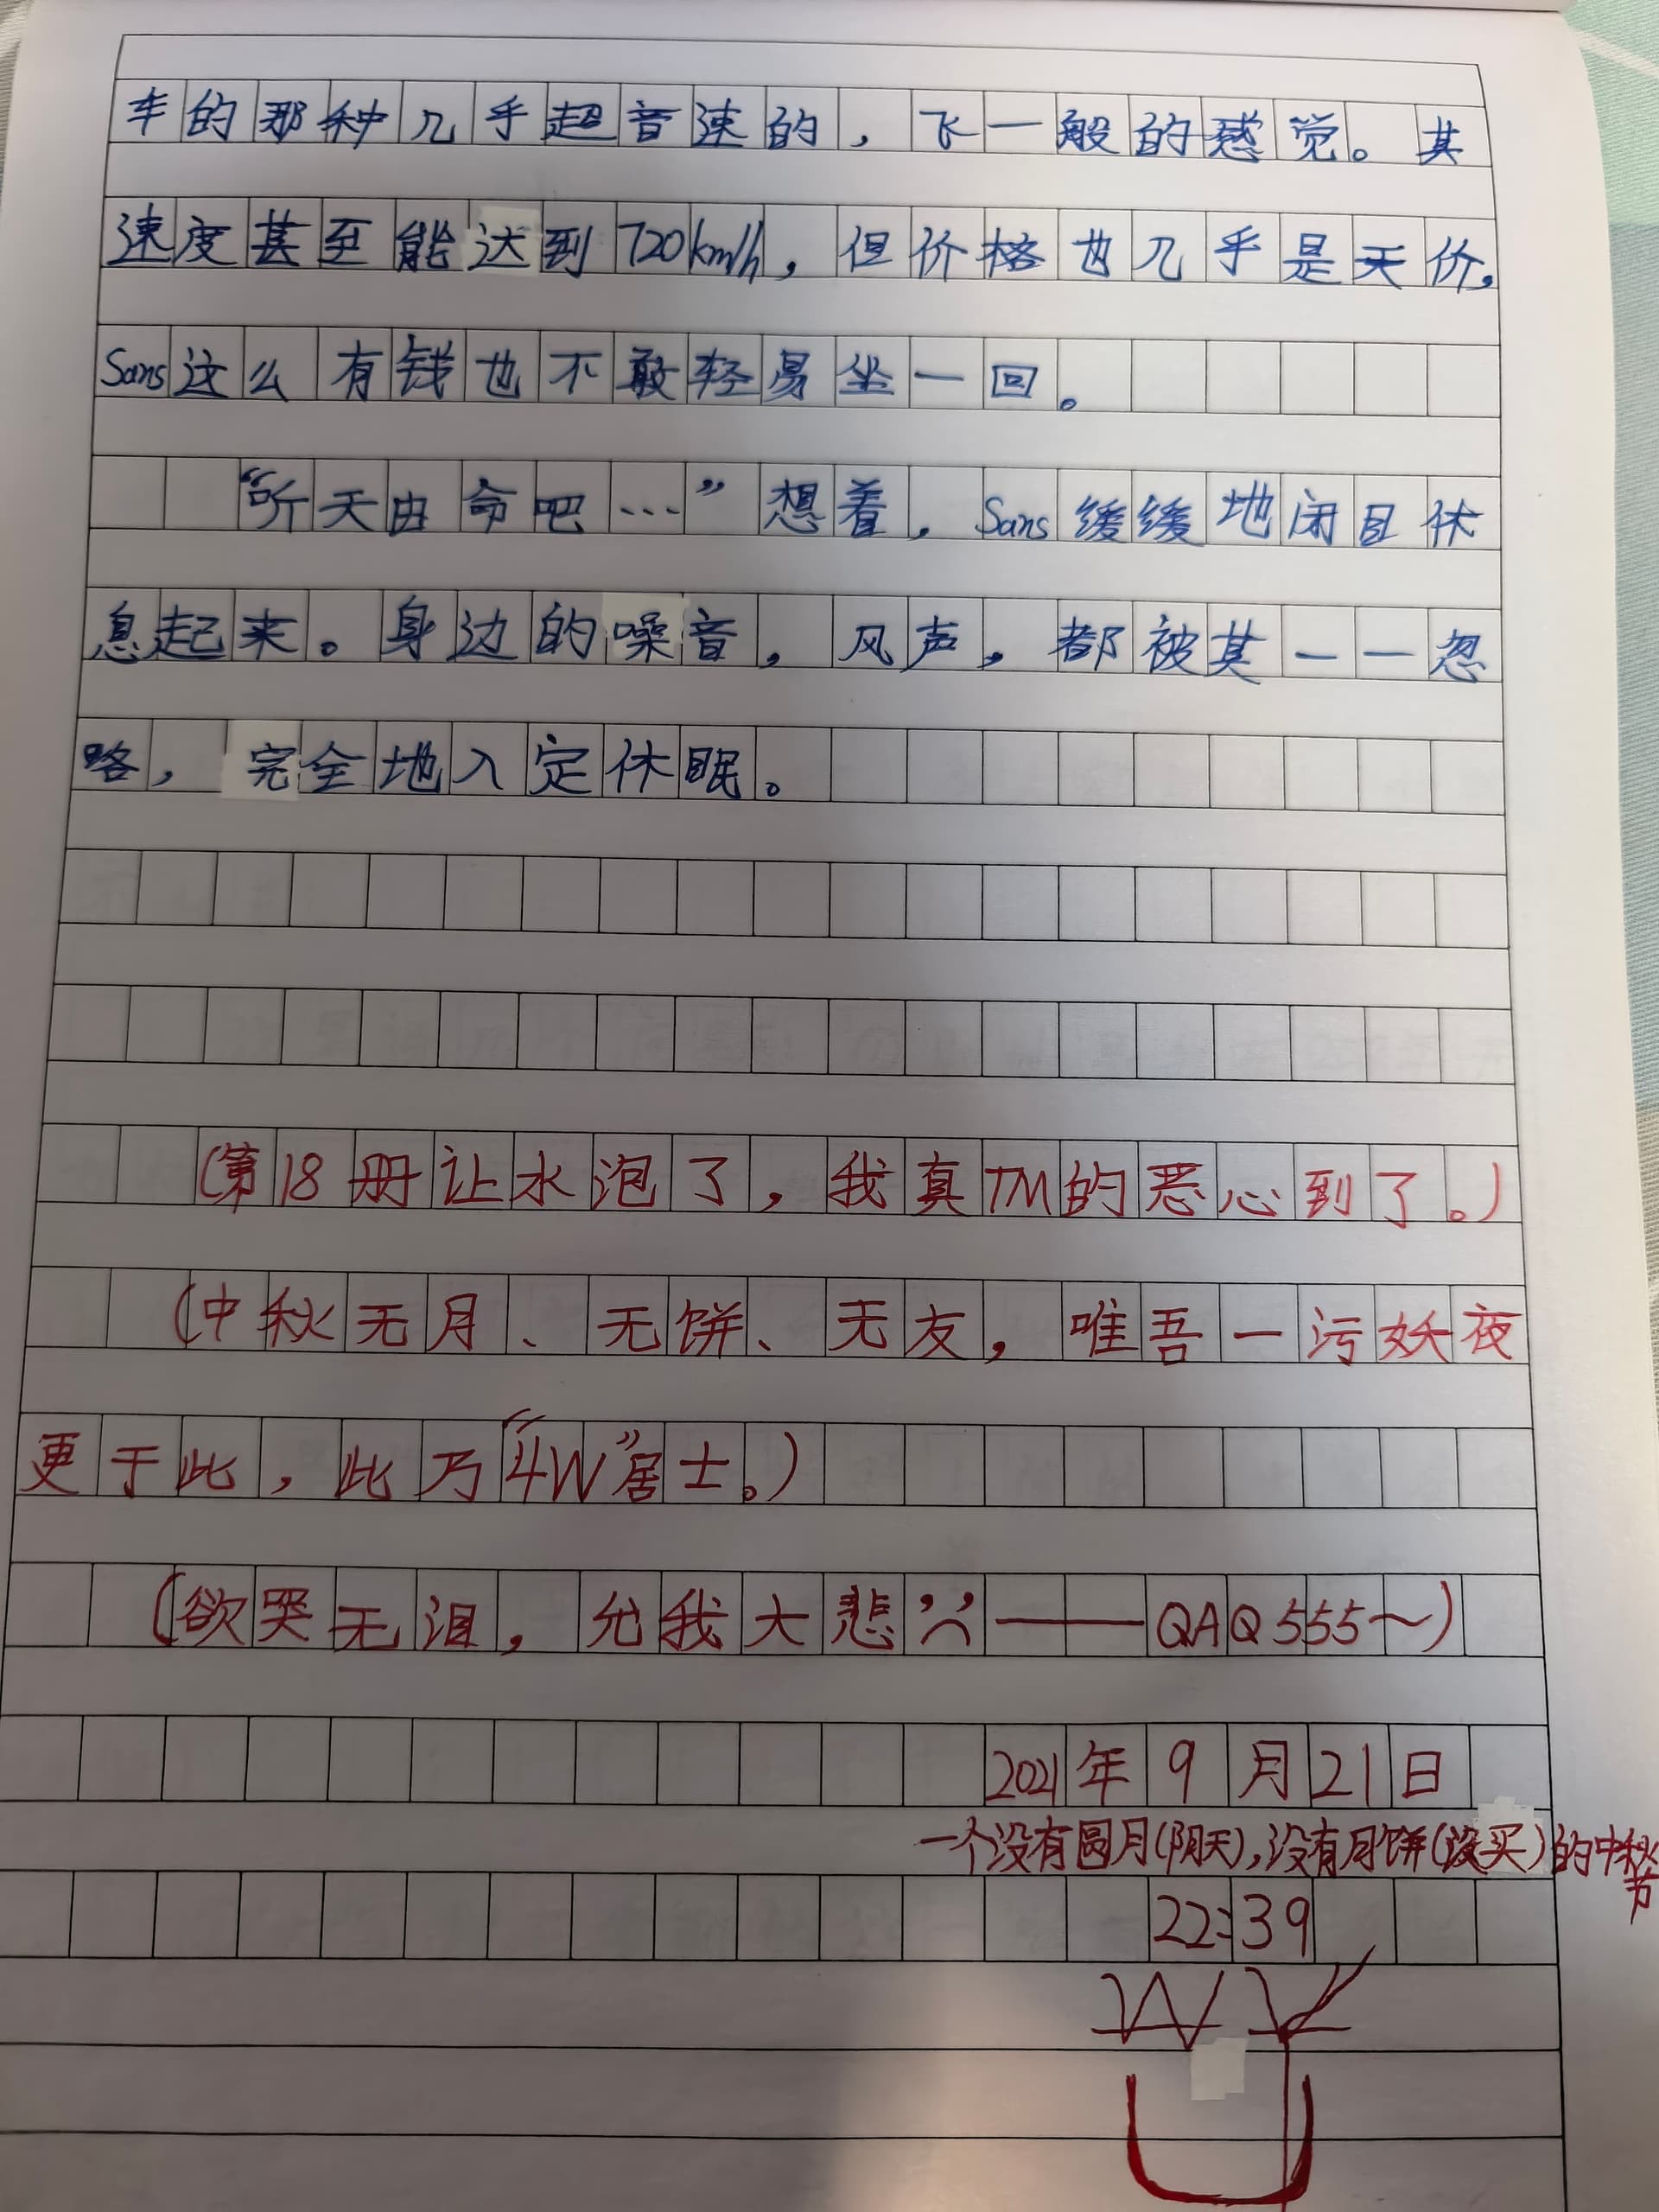 车的那种几乎超音速的，飞一般的感觉。其
速度甚至能达到720km/h，但价格也几乎是天价，
Sans这么有钱也不敢轻易坐一回。
“听天由命吧…”想着，Sans缓缓地闭目休
息起来。身边的噪音，风声，都被其一一忽
略，完全地入定休眠。
（第18册让水泡了，我真TM的恶心到了。）
（中秋无月、无饼、无友，唯吾一污妖夜
更于此，此乃“4W”居士。）
（欲哭无泪，允我大悲——QAQ555～）
2021年9月21日
一个没有圆月(阴天)，没有月饼(没买)的中秋节
22:39
WY